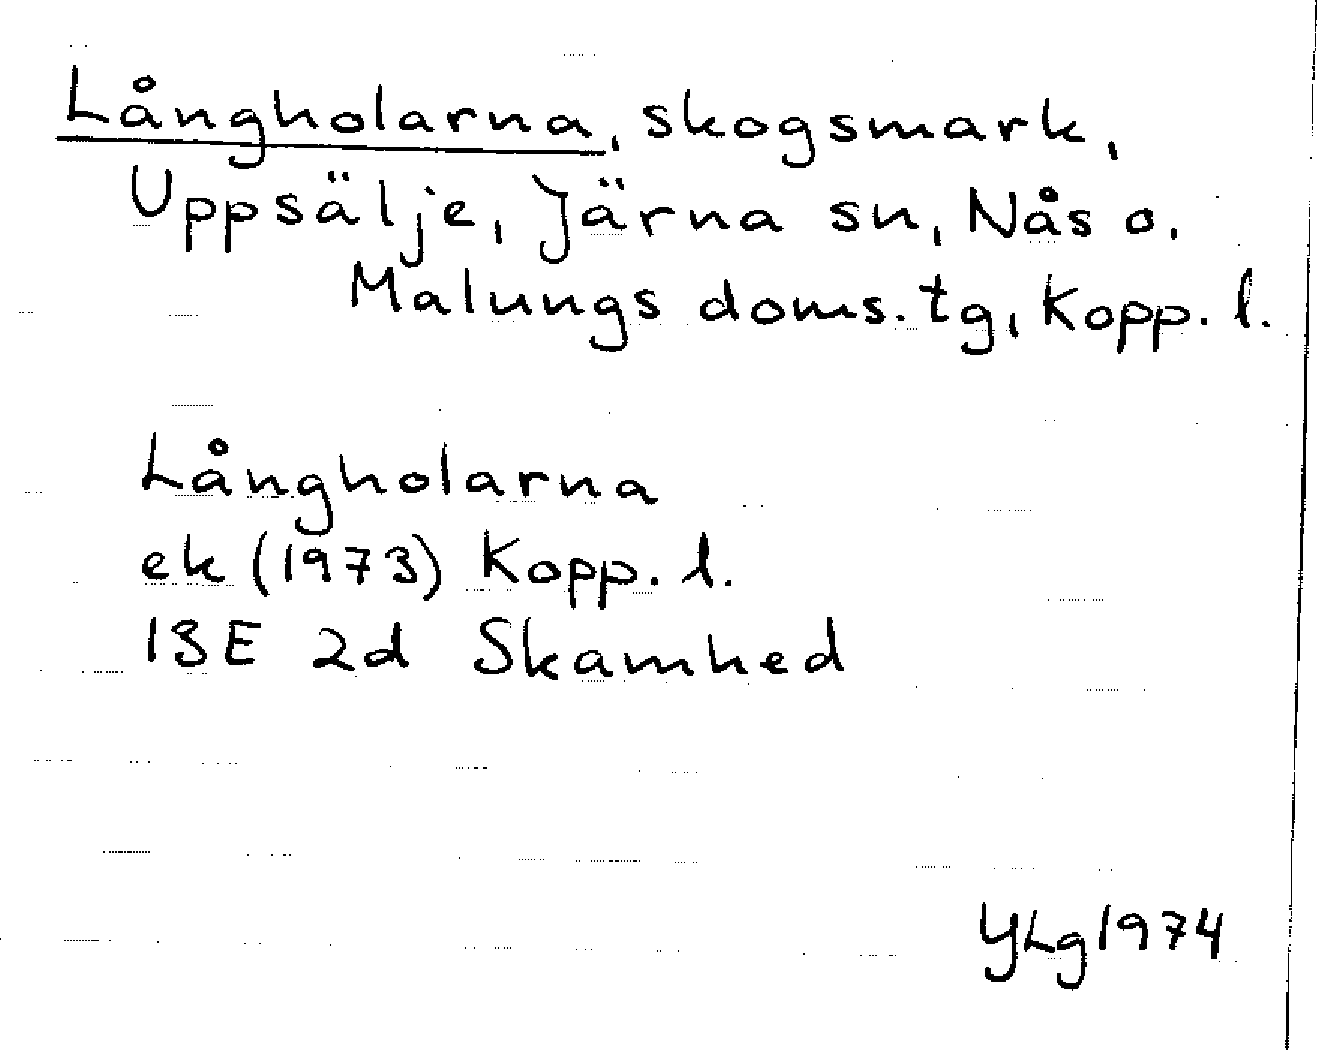 Långholarna, skogsmark,
Uppsälje, Järna sn, Nås o.
Malungs doms.tg, Kopp. l.
Långholarna
ek (1973) Kopp. l.
13E 2d Skamhed
YLg 1974